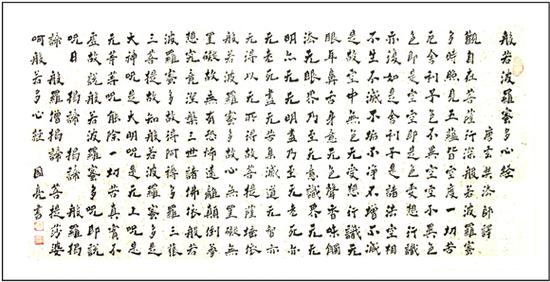 般若波羅蜜多心經
唐玄奘法師譯
觀自在菩薩行深般若波羅蜜
多時照見五蘊皆空度一切苦
厄舍利子色不異空空不異色
色即是空空即是色受想行識
亦復如是舍利子是諸法空相
不生不滅不垢不淨不增不減
是故空中無色无受想行識无
眼耳鼻舌身意无色聲香味觸
法无眼界乃至无意識界无无
明亦无无明盡乃至无老死亦
无老死盡无苦集滅道无智亦
无得以无所得故菩提薩埵依
般若波羅蜜多故心无罣礙无
罣礙故無有恐怖遠離顛倒夢
想究竟涅槃三世諸佛依般若
波羅蜜多故得阿耨多羅三藐
三菩提故知般若波羅蜜多是
大神呪是大明呪是无上呪是
无等等呪能除一切苦真實不
虛故說般若波羅蜜多呪即說
呪曰 揭諦 揭諦 般羅揭
諦 般羅僧揭諦 菩提莎婆
呵般若多心經